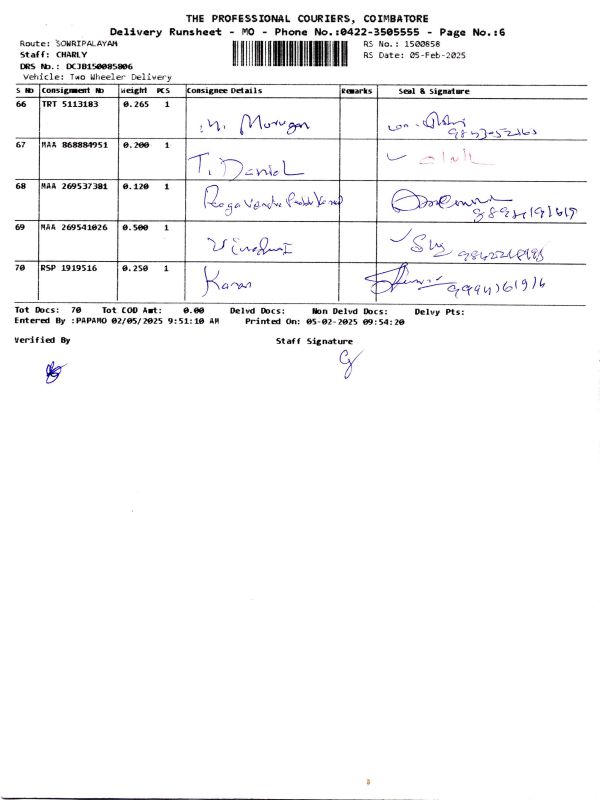 THE PROFESSIONAL COURIERS, COIMBATORE
Delivery Runsheet - MO - Phone No.:0422-3505555 - Page No.:6
Route: SOWRIPALAYAM RS No.: 1500858
Staff: CHARLY RS Date: 05-Feb-2025
DRS No.: DCJB150085806
Vehicle: Two Wheeler Delivery
S No Consignment No Weight PCS Consignee Details Remarks Seal & Signature
66 TRT 5113183 0.265 1 M. Murugan
67 MAA 868884951 0.200 1 T. Daniel
68 MAA 269537381 0.120 1
69 MAA 269541026 0.500 1
70 RSP 1919516 0.250 1 Karan
Tot Docs: 70 Tot COD Amt: 0.00 Delvd Docs: Non Delvd Docs: Delvy Pts:
Entered By :PAPAMO 02/05/2025 9:51:10 AM Printed On: 05-02-2025 09:54:20
Verified By Staff Signature